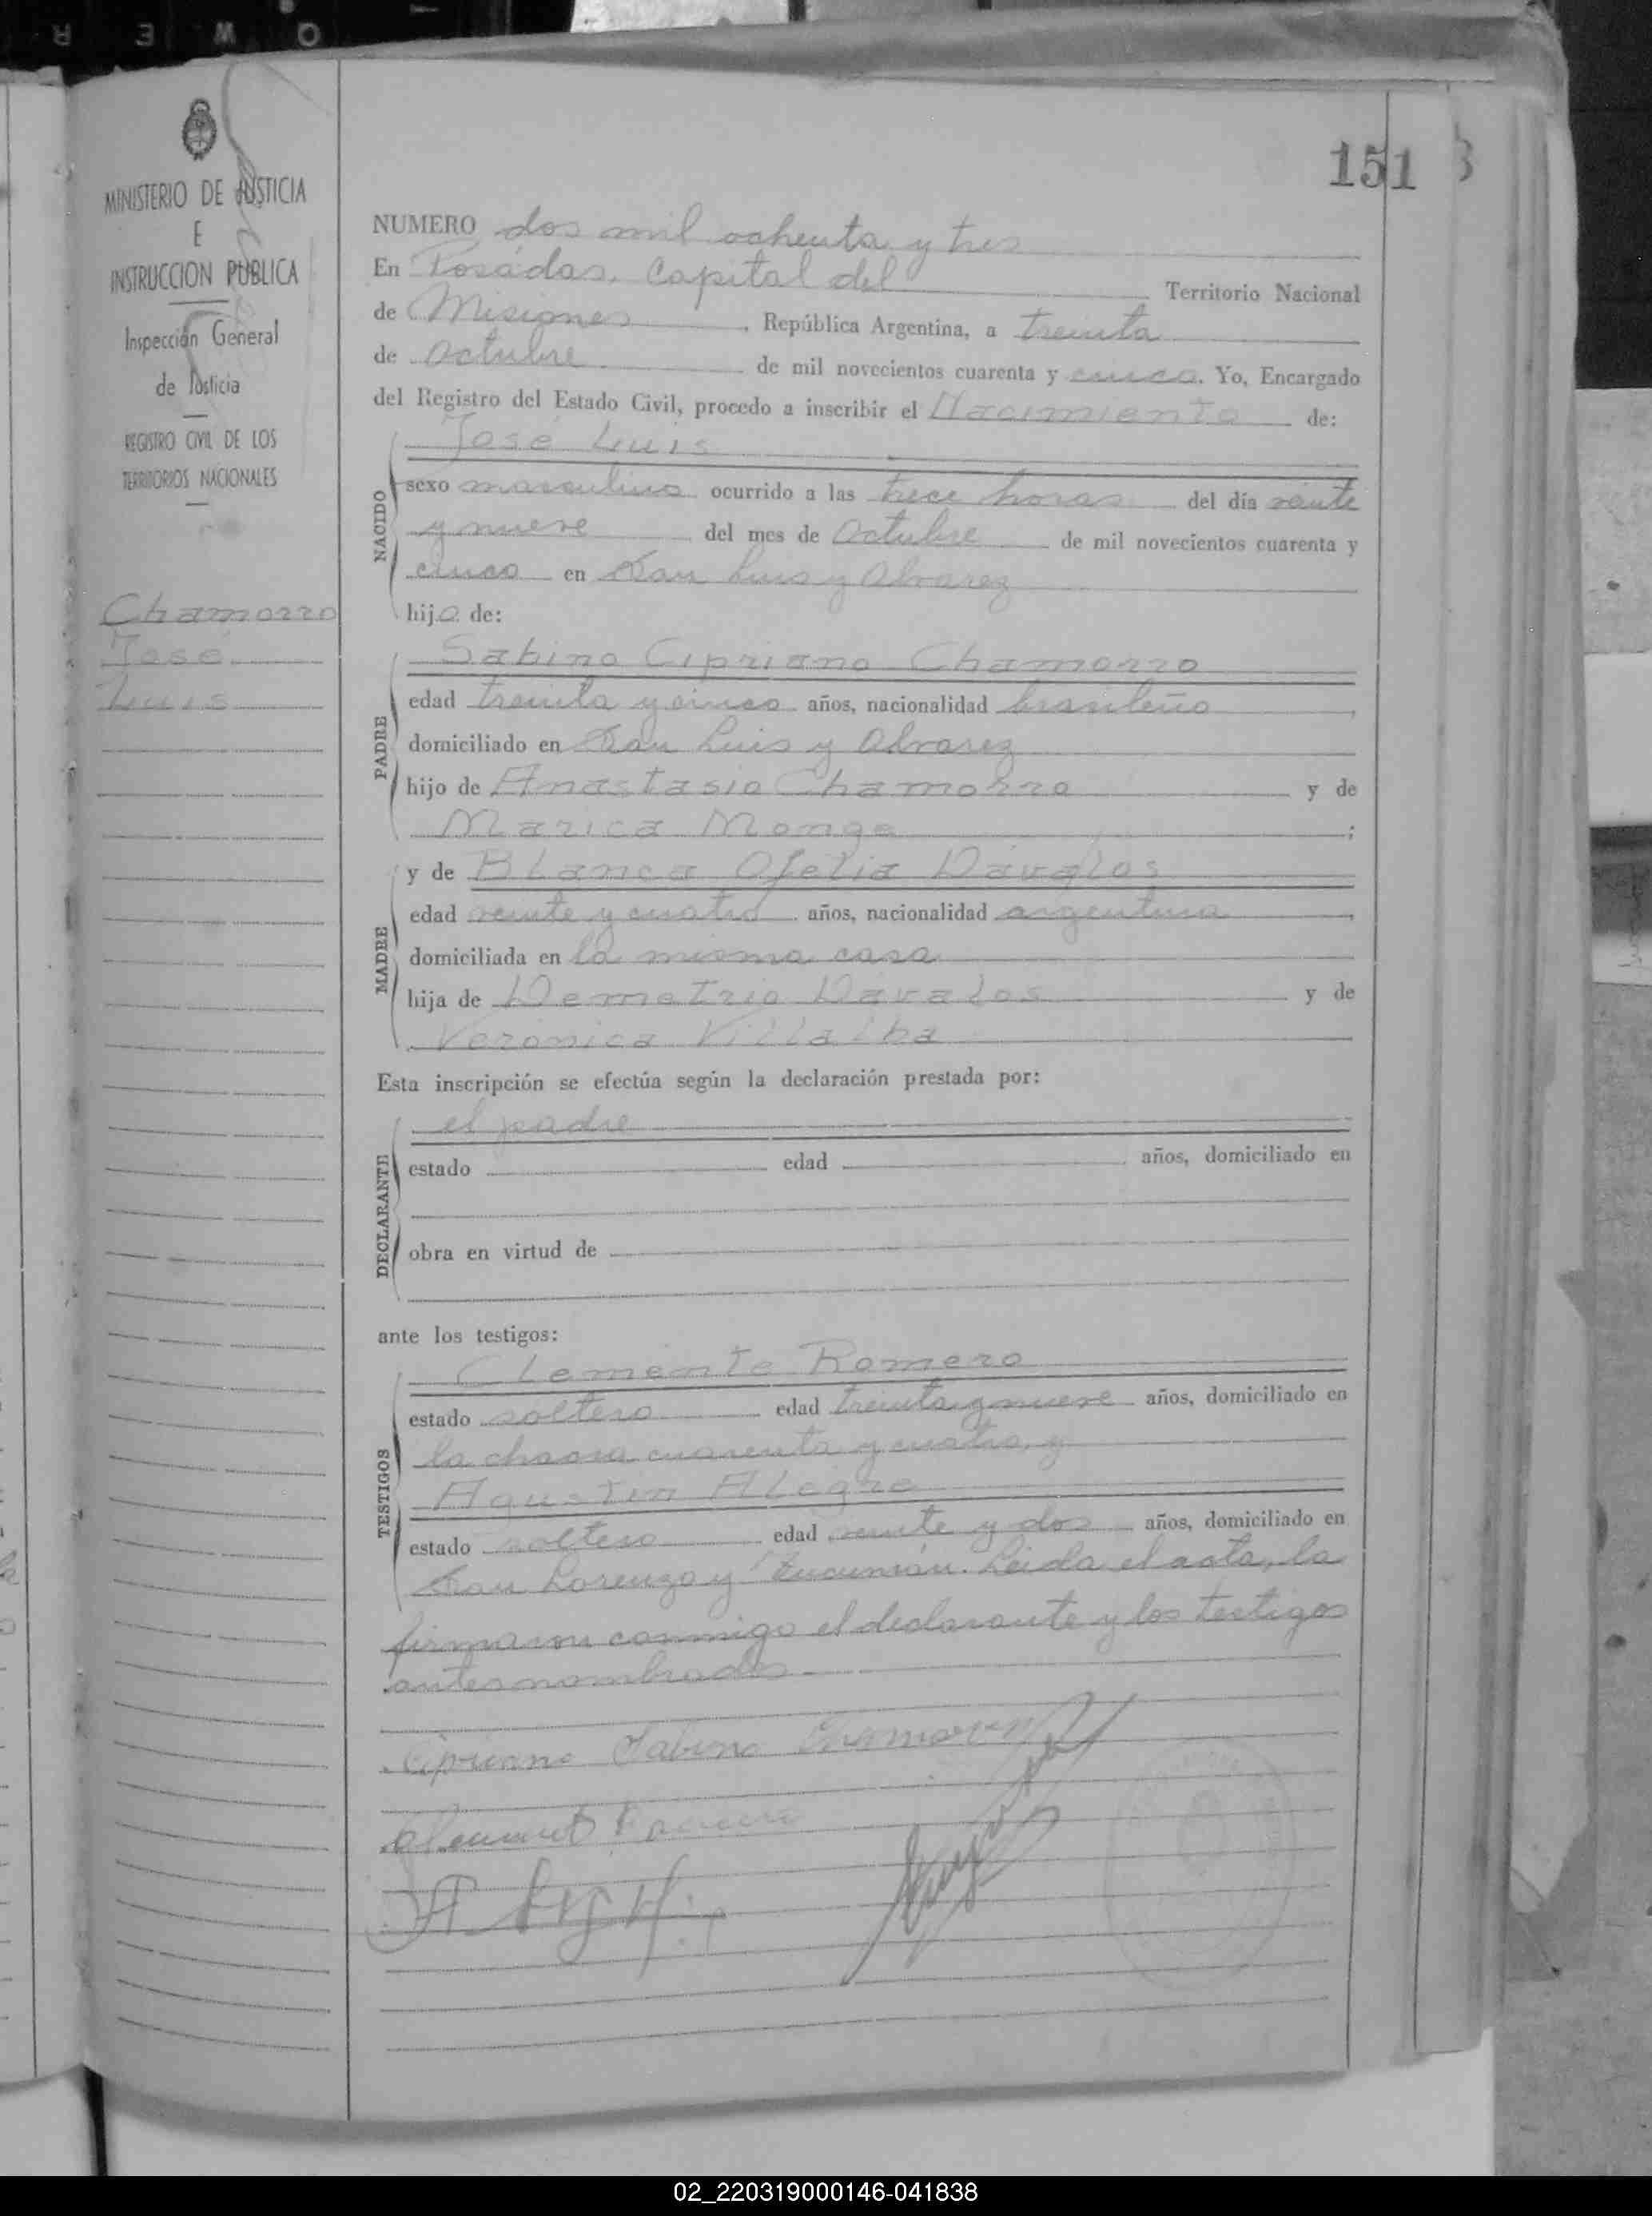 R E W Q
MINISTERIO DE JUSTICIA
E
INSTRUCCION PUBLICA
Inspección General
de Justicia
REGISTRO CIVIL DE LOS
TERRITORIOS NACIONALES
Chamorro
José
Luis
151
NUMERO dos mil ochenta y tres
En Posadas, Capital del Territorio Nacional
de Misiones, República Argentina, a treinta
de Octubre de mil novecientos cuarenta y cinco. Yo, Encargado
del Registro del Estado Civil, procedo a inscribir el Nacimiento de:
José Luis
NACIDO
sexo masculino ocurrido a las trece horas del día veinte
y nueve del mes de Octubre de mil novecientos cuarenta y
cinco en San Luis y Alvarez
hijo de:
Sabino Cipriano Chamorro
PADRE
edad treinta y cinco años, nacionalidad brasileño,
domiciliado en San Luis y Alvarez
hijo de Anastasio Chamorro y de
Marica Monge;
y de Blanca Ofelia Dávalos
MADRE
edad veinte y cuatro años, nacionalidad argentina,
domiciliada en la misma casa
hija de Demetrio Davalos y de
Verónica Villalba
Esta inscripción se efectúa según la declaración prestada por:
el padre
DECLARANTE
estado edad años, domiciliado en
obra en virtud de
ante los testigos:
Clemente Romero
TESTIGOS
estado soltero edad treinta y nueve años, domiciliado en
la chacra cuarenta y cuatro, y
Agustin Alegre
estado soltero edad veinte y dos años, domiciliado en
San Lorenzo y Tucumán. Leida el acta, la
firmaron conmigo el declarante y los testigos
antes nombrados.
Cipriano Sabino Chamorro
02_220319000146-041838